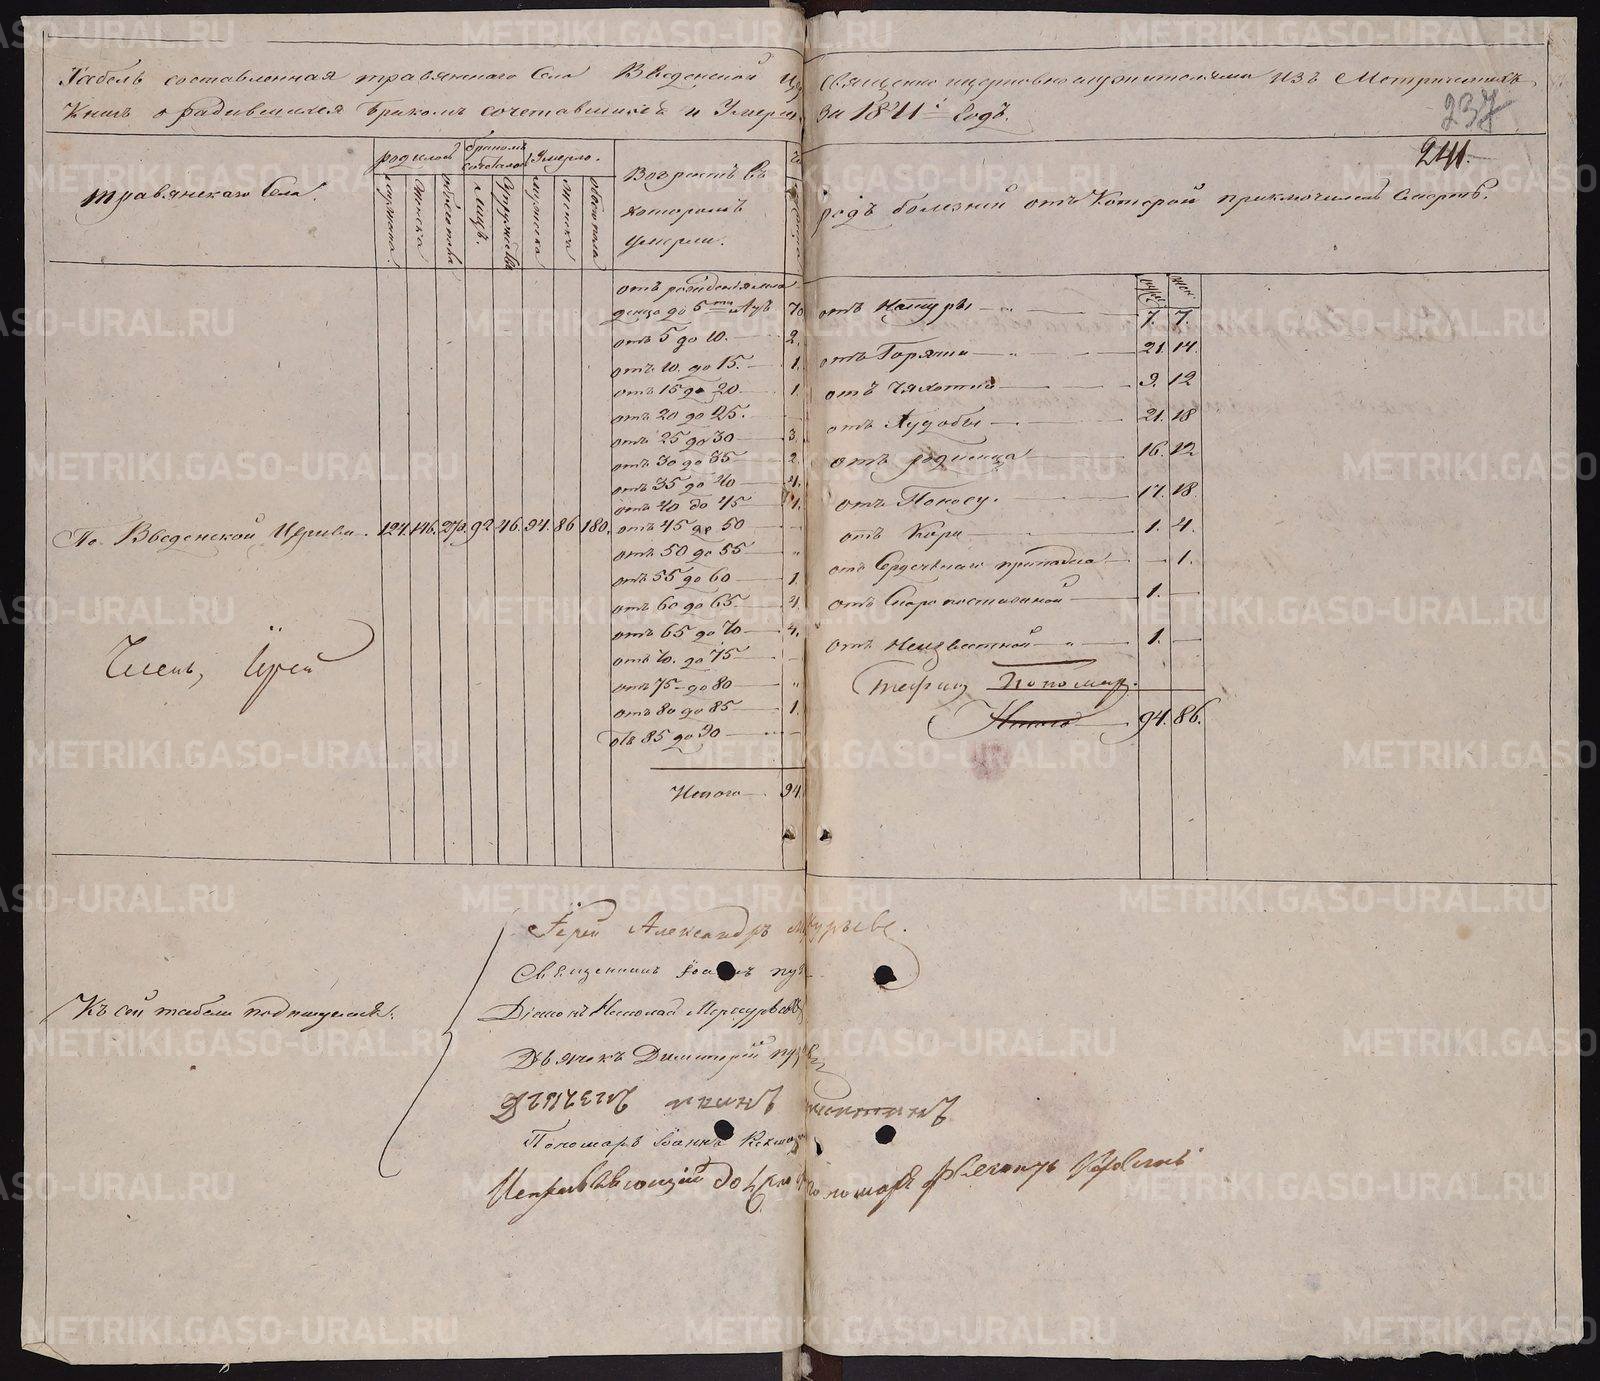 Табель составленная травянскаго Села Введенской Церкви Священно церковнослужителями Изъ Метрическихъ
Книгъ о родившихся бракомъ сочетавшихся и Умерших За 1841й Годъ.
237
241.
травянскаго Села.
родилось
бракомъ
Умерло.
мужеска.
женска
обоего пола
лицъ.
Супружествъ
мужеска
женска
обоего пола
Возрастъ въ
которомъ
умерли.
родъ болезней отъ Которой приключилась Смерть.
муж
жен
По Введенской Церкви. 124. 146. 270. 92. 46. 94. 86. 180.
отъ рожденія
до 5ти лѣтъ 70
отъ 5 до 10. 2.
отъ 10. до 15. 1.
отъ 15 до 20. 1.
отъ 20 до 25.
отъ 25 до 30 3.
отъ 30 до 35 2.
отъ 35 до 40 4.
отъ 40 до 45 1.
отъ 45 до 50
отъ 50 до 55
отъ 55 до 60 1.
отъ 60 до 65. 4.
отъ 65 до 70 4.
отъ 70. до 75
отъ 75 до 80
отъ 80 до 85 1.
отъ 85 до 90
Итого 94.
отъ Натуры 7. 7.
отъ Горячки 21. 14.
отъ Чахотки 9. 12
отъ Худобы 21. 18
отъ родимца 16. 12
отъ Поносу. 17. 18.
отъ Кори 1. 4.
отъ Сердечнаго припадка 1.
отъ Скоропостижной 1.
отъ Неизвестной 1.
Итого 94. 86.
Членъ, Іерей
Пономар.
Къ сей табели подписуемся.
Іерей Александръ
Священникъ Іоаннъ
Діаконъ Николай Меркурьевъ
Дьячекъ Димитрій
Пономарь Іоаннъ
Исправляющій должность пономаря